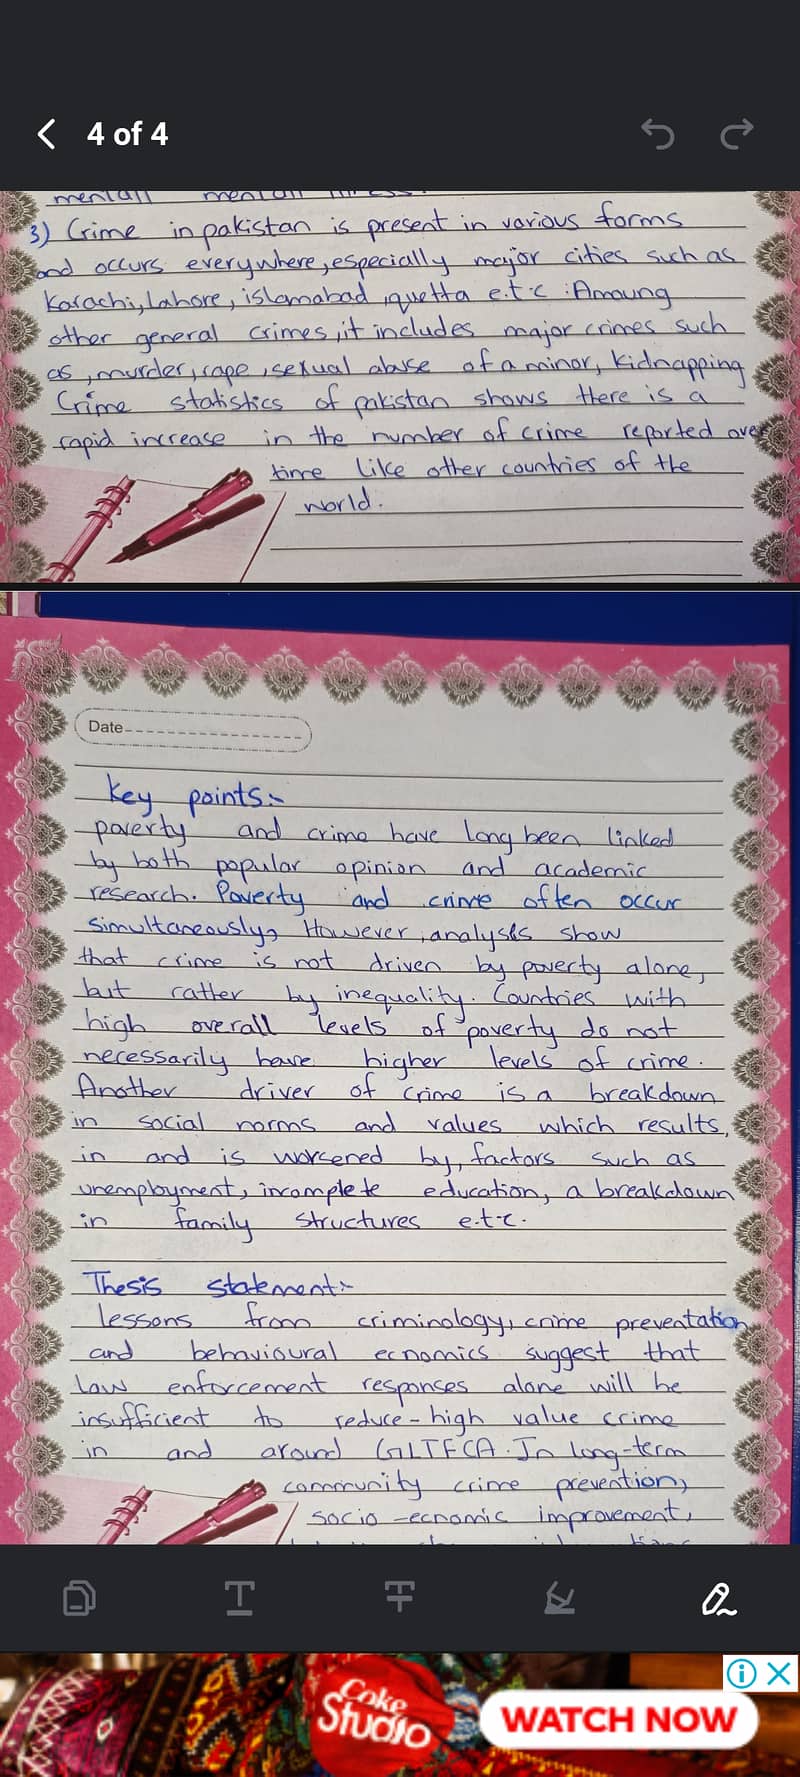 4 of 4
3) Crime in pakistan is present in various forms
and occurs everywhere, especially major cities such as
Karachi, Lahore, islamabad, quetta e.t.c. Amoung
other general crimes, it includes major crimes such
as, murder, rape, sexual abuse of a minor, kidnapping
Crime statistics of pakistan shows there is a
rapid increase in the number of crime reported over
time like other countries of the
world.
Date
key points:-
poverty and crime have long been linked
by both popular opinion and academic
research. Poverty and crime often occur
simultaneously, However, analysis show
that crime is not driven by poverty alone,
but rather by inequality. Countries with
high overall levels of poverty do not
necessarily have higher levels of crime.
Another driver of crime is a breakdown
in social norms and values which results,
in and is worsened by, factors such as
unemployment, incomplete education, a breakdown
in family structures e.t.c.
Thesis statement:-
lessons from criminology, crime preventation
and behavioural ecnomics suggest that
law enforcement responses alone will be
insufficient to reduce-high value crime
in and around GLTFCA. In long-term
community crime prevention,
socio-ecnomic improvement,
Coke
Studio
WATCH NOW